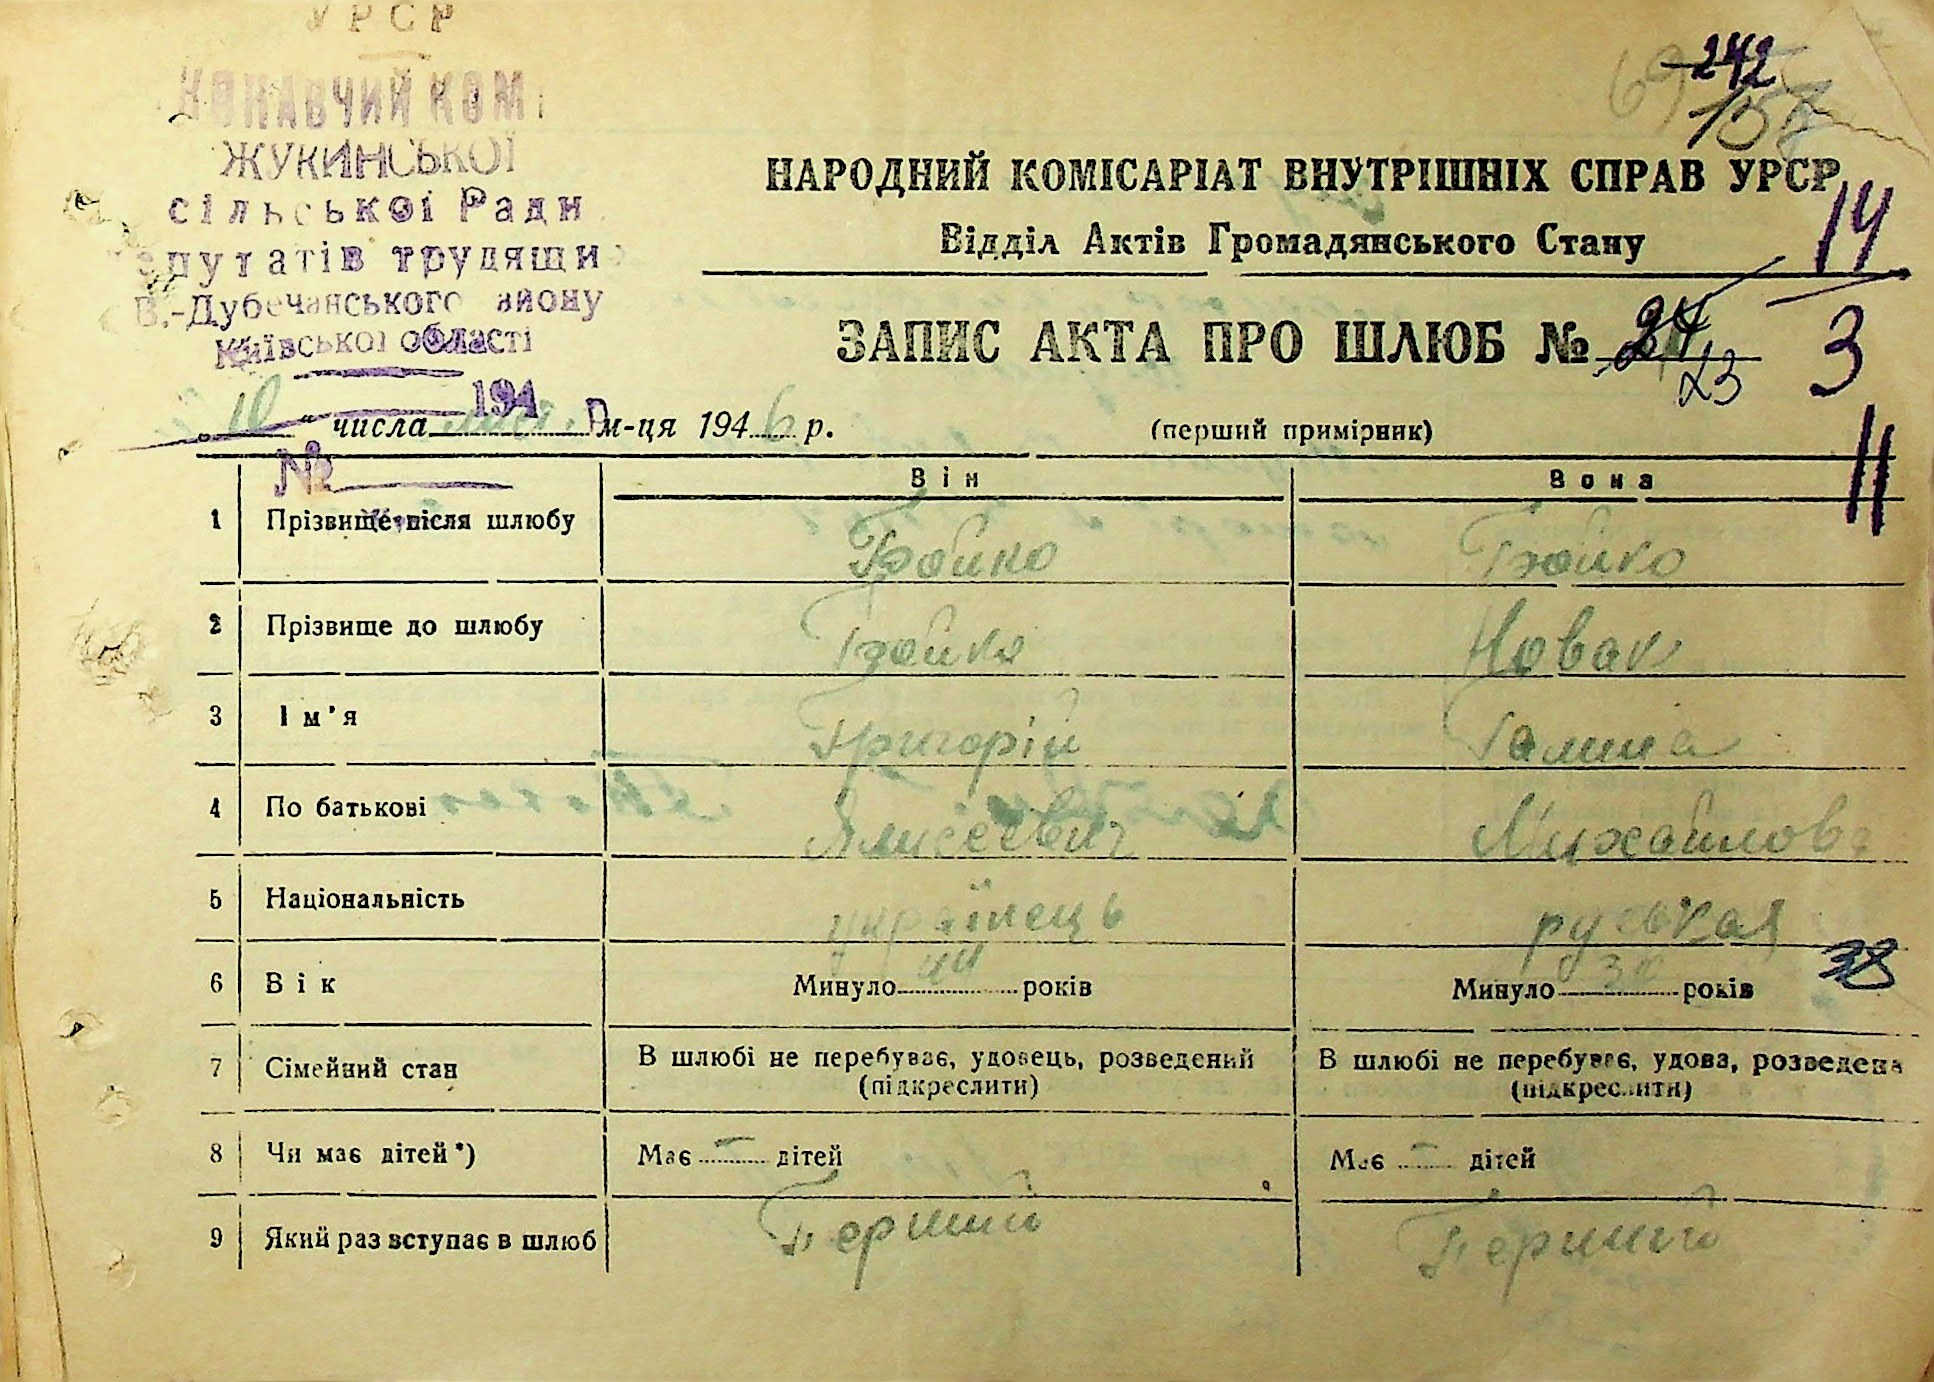 УРСР
КОНАВЧИЙ КОМ
ЖУКИНСЬКОЇ
сільської Ради
епутатів трудящи
В.-Дубечанського айону
Київської області
194 р.
№
242
69
158
НАРОДНИЙ КОМІСАРІАТ ВНУТРІШНІХ СПРАВ УРСР
Відділ Актів Громадянського Стану
14
3
ЗАПИС АКТА ПРО ШЛЮБ № 24
23
„10“ числа м-ця 1946 р.
(перший примірник)
11
Він Вона
1 Прізвище після шлюбу Бойко Бойко
2 Прізвище до шлюбу Бойко Новак
3 Ім'я Григорій Галина
4 По батькові Єлисеєвич Михайловна
5 Національність українець руская
6 Вік Минуло 44 років Минуло років 38
7 Сімейний стан В шлюбі не перебуває, удовець, розведений В шлюбі не перебуває, удова, розведена
(підкреслити) (підкреслити)
8 Чи має дітей*) Має – дітей Має – дітей
9 Який раз вступає в шлюб Перший Перший